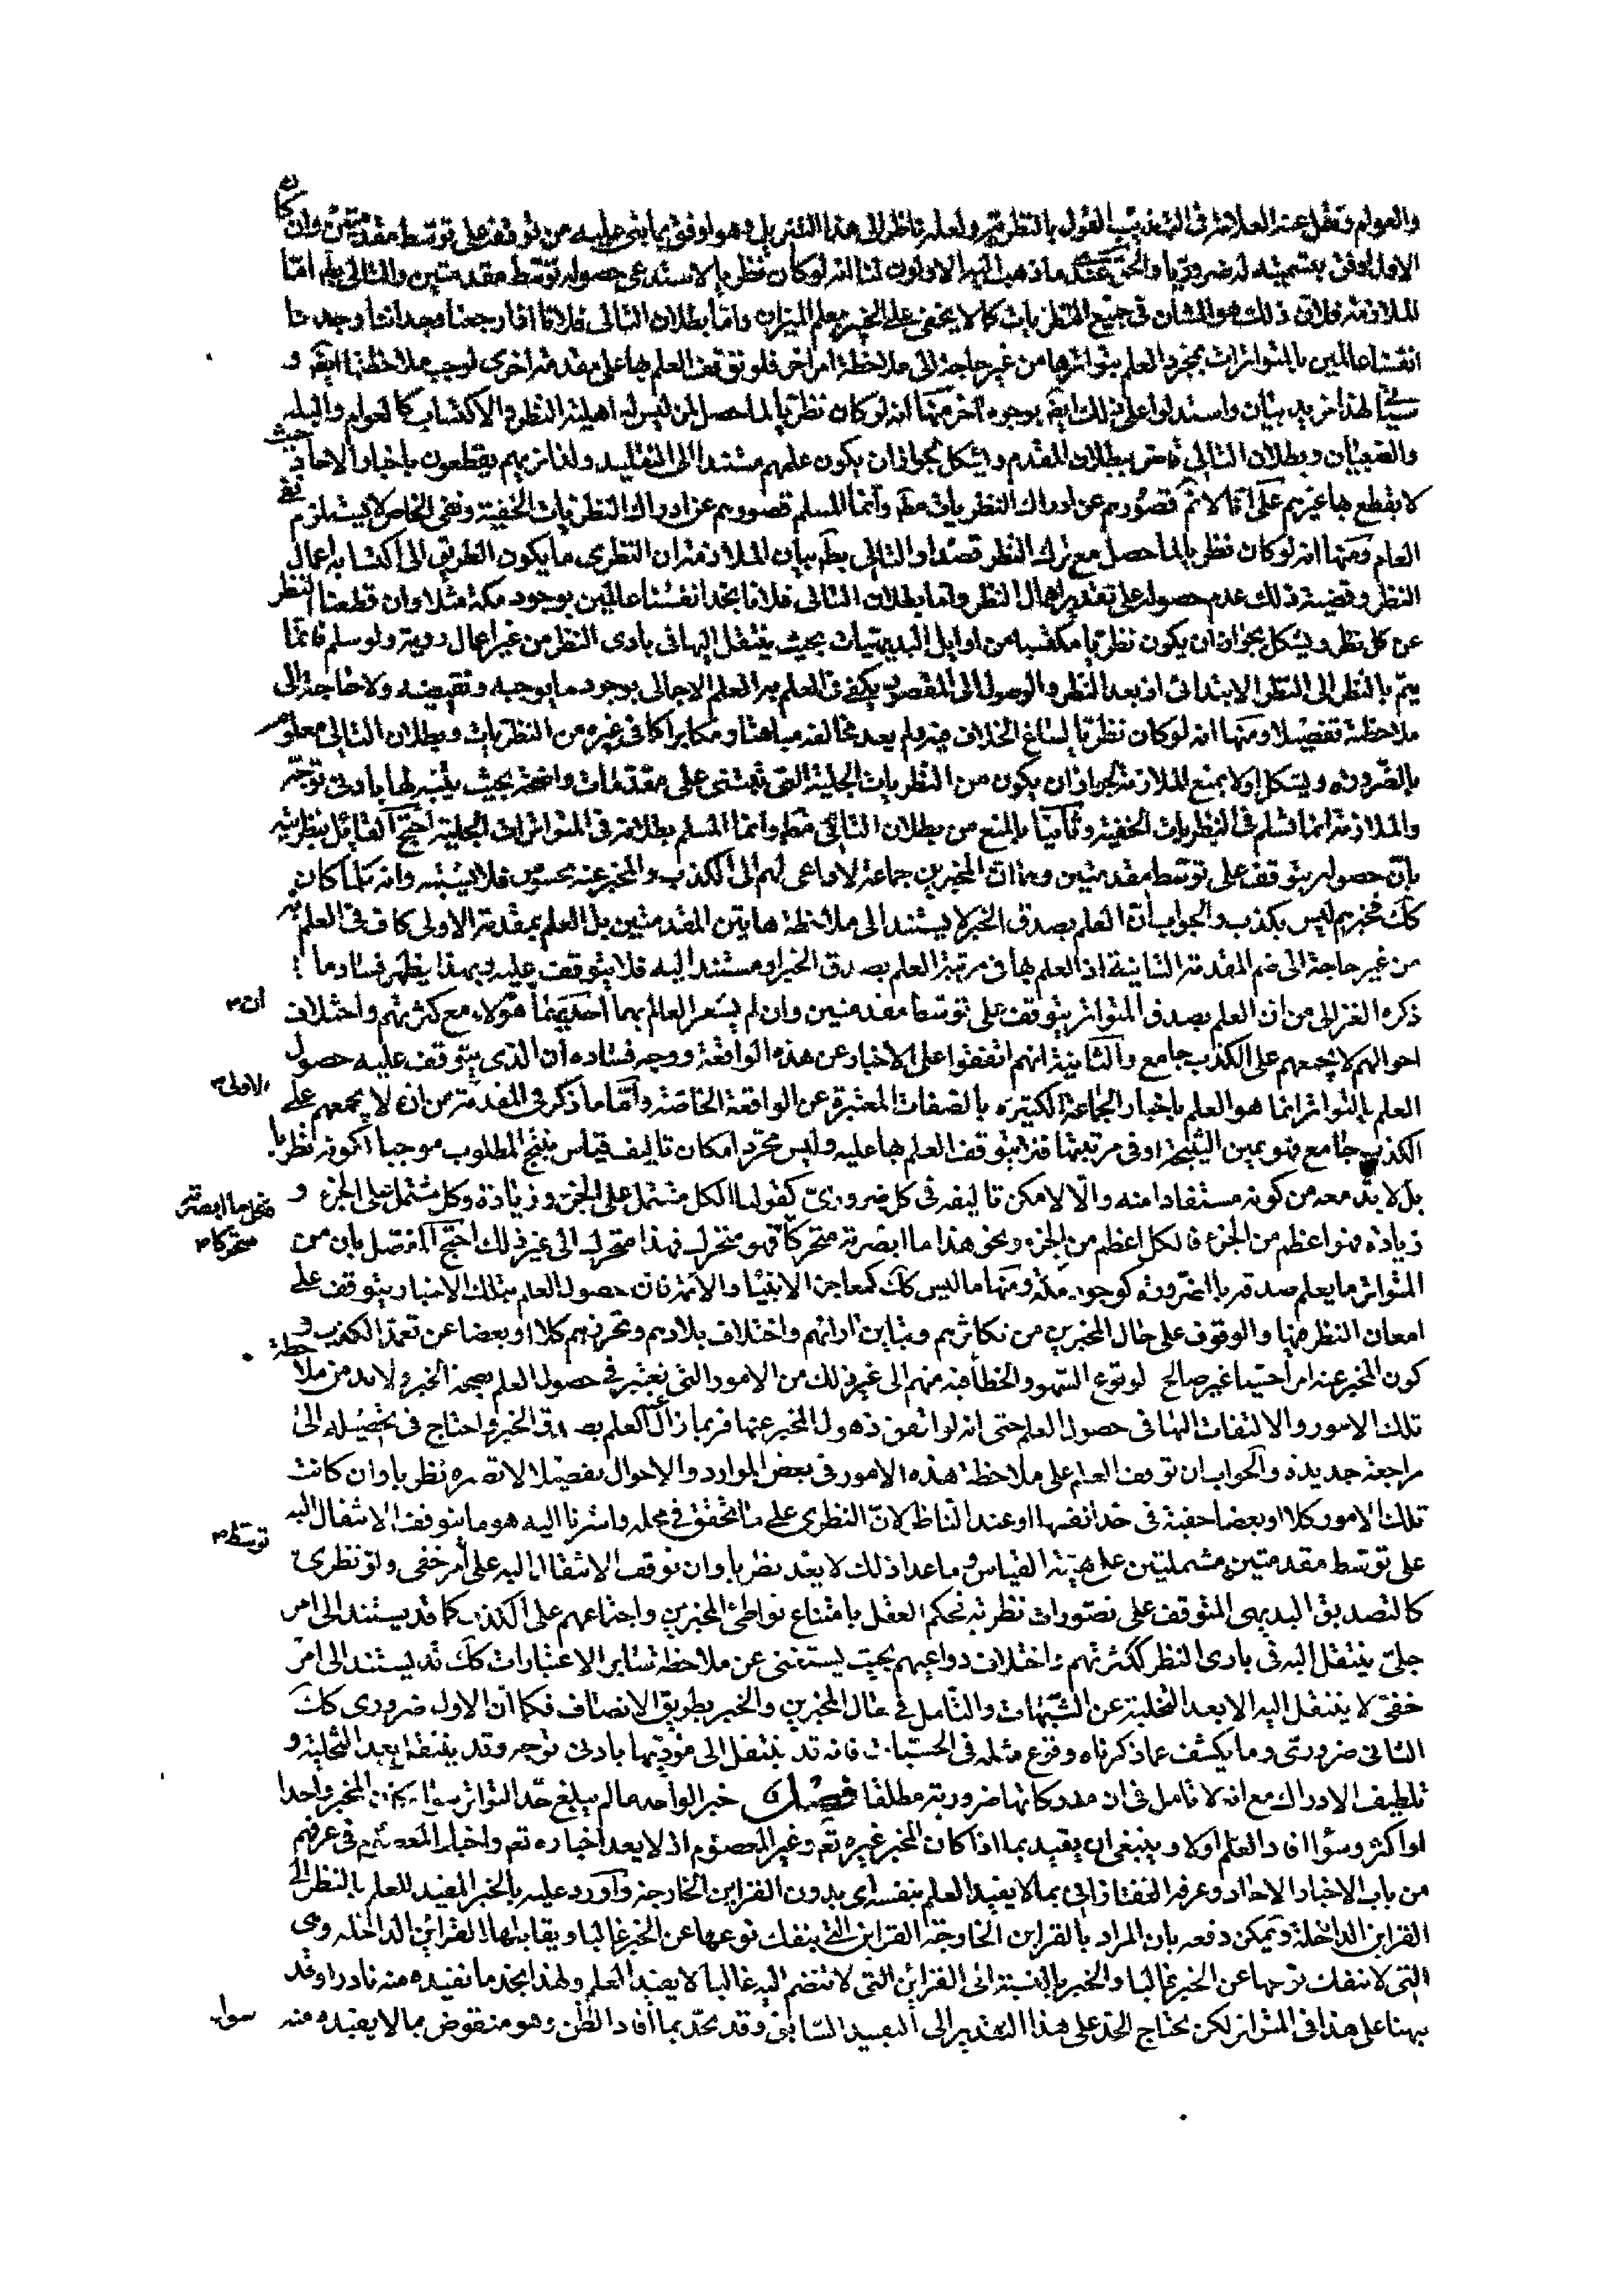 والعوام ونقل عن العلامة فى التهذيب القول بالنظرية ولعله ناظر الى هذا التنزيل وهو اوفق بما بنى عليه من توقفه على توسط مقدمتين وان كان
الاول اوفق بتسميته له ضروريا والحق عندى ما ذهب اليه الاولون لنا انه لو كان نظريا لاستدعى حصوله توسط مقدمتين والتالى بط اما
الملازمة فلان ذلك هو الشان فى جميع النظريات كما لا يخفى على الخبير بعلم الميزان واما بطلان التالى فلانا اذا راجعنا وجداننا وجدنا
انفسنا عالمين بالمتواترات بمجرد العلم بتواترها من غير حاجة الى ملاحظة امر اخر فلو توقف العلم بها على مقدمة اخرى لوجب ملاحظتها ايضا و
سيأتى لهذا مزيد بيان واستدلوا على ذلك ايضا بوجوه اخر منها انه لو كان نظريا لما حصل لمن ليس له اهلية النظر والاكتساب كالعوام والبله
والصبيان وبطلان التالى قاض ببطلان المقدم ويشكل بجواز ان يكون علمهم مستندا الى التقليد ولذا نريهم يقطعون باخبار الاحاد حيث
لا يقطع بها غيرهم على انا لا نم قصورهم عن ادراك النظريات مط وانما المسلم قصورهم عن ادراك النظريات الخفية ونفى الخاص لا يستلزم نفى
العام ومنها انه لو كان نظريا لما حصل مع ترك النظر قصدا والتالى بط بيان الملازمة ان النظرى ما يكون الطريق الى اكتسابه اعمال
النظر وقضية ذلك عدم حصوله على تقدير اهمال النظر واما بطلان التالى فلانا نجد انفسنا عالمين بوجود مكة مثلا وان قطعنا النظر
عن كل نظر ويشكل بجواز ان يكون نظريا مكتسبا من اوايل البديهيات بحيث ينتقل اليها فى بادى النظر من غير اعمال روية ولو سلم فانما
يتم بالنظر الى النظر الابتدائى اذ بعد النظر والوصول الى المقصود يكفى فى العلم به العلم الاجمالى بوجود ما يوجبه ويقتضيه ولا حاجة الى
ملاحظته تفصيلا ومنها انه لو كان نظريا لساغ الخلاف فيه ولم يعد مخالفه مباهتا ومكابرا كما فى غيره من النظريات وبطلان التالى معلوم
بالضرورة ويشكل اولا بمنع الملازمة لجواز ان يكون من النظريات الجلية التى تبتنى على مقدمات واضحة بحيث يتنبه لها بادنى توجه
والملازمة انما تسلم فى النظريات الخفية وثانيا بالمنع من بطلان التالى مط وانما المسلم بطلانه فى المتواترات الجلية احتج القائل بنظريته
بان حصوله يتوقف على توسط مقدمتين وهما ان المخبرين جماعة لا داعى لهم الى الكذب والمخبر عنه محسوس فلا يشتبه وانه كلما كان
كك فخبرهم ليس بكذب والجواب ان العلم بصدق الخبر لا يستند الى ملاحظة هاتين المقدمتين بل العلم بمقدمة الاولى كاف فى العلم به
من غير حاجة الى ضم المقدمة الثانية اذ العلم بها فى مرتبة العلم بصدق الخبر او مستند اليه فلا يتوقف عليه وبهذا يظهر فساد ما
ذكره الغزالى من ان العلم بصدق المتواتر يتوقف على توسط مقدمتين وان لم يشعر العالم بهما احديهما ان هؤلاء مع كثرتهم واختلاف
احوالهم لا يجمعهم على الكذب جامع والثانية انهم اتفقوا على الاخبار عن هذه الواقعة ووجه فساده ان الذى يتوقف عليه حصول
العلم بالتواتر انما هو العلم باخبار الجماعة الكثيرة بالصفات المعتبرة عن الواقعة الخاصة واما ما ذكر فى المقدمة الاولى من انه لا يجمعهم على
الكذب جامع فهو عين النتيجة او فى مرتبتها فلا يتوقف العلم بها عليه وليس مجرد امكان تاليف قياس ينتج المطلوب موجبا لكونه نظريا
بل لا بد معه من كونه مستفادا منه والا لامكن تاليفه فى كل ضرورى كقولنا الكل مشتمل على الجزء وزيادة وكل مشتمل على الجزء و
زيادة فهو اعظم من الجزء فالكل اعظم من الجزء ونحو هذا ما ابصرته متحركا وكل ما ابصرته متحركا فهو متحرك فهذا متحرك الى غير ذلك احتج المفصل بان من
المتواتر ما يعلم صدقه بالضرورة كوجود مكة ومنها ما ليس كك كمعاجز الانبياء والائمة فان حصول العلم بتلك الاخبار يتوقف على
امعان النظر فيها والوقوف على حال المخبرين من تكاثرهم وتباين ارائهم واختلاف بلادهم وتحرزهم كلا او بعضا عن تعمد الكذب و
كون المخبر عنه امرا حسيا غير صالح لوقوع السهو والخطأ فيه منهم الى غير ذلك من الامور التى تعتبر فى حصول العلم بصحة الخبر ولا بد من ملاحظة
تلك الامور والالتفات اليها فى حصول العلم حتى انه لو اتفق ذهول المخبر عنها فربما زال العلم بصدق الخبر واحتاج فى تحصيله الى
مراجعة جديدة والجواب ان توقف العلم على ملاحظة هذه الامور فى بعض الموارد والاحوال تفصيلا لا تصيره نظريا وان كانت
تلك الامور كلا او بعضا خفية فى حد انفسها او عند الناظر لان النظرى على ما تحقق فى محله واشرنا اليه هو ما يتوقف الانتقال اليه
على توسط مقدمتين مشتملتين على هيئة القياس وما عدا ذلك لا يعد نظريا وان توقف الانتقال اليه على توسط امر خفى ولو نظرى
كالتصديق البديهى المتوقف على تصورات نظرية فحكم العقل بامتناع تواطئ المخبرين واجتماعهم على الكذب كما قد يستند الى امر
جلى ينتقل اليه فى بادى النظر ككثرتهم واختلاف دواعيهم بحيث يستغنى عن ملاحظة ساير الاعتبارات كك قد يستند الى امر
خفى لا ينتقل اليه الا بعد التخلية عن الشبهات والتامل فى حال المخبرين والخبر بطريق الانصاف فكما ان الاول ضرورى كك
الثانى ضرورى ومما يكشف عما ذكرناه وقوع مثله فى الحسيات فانه قد ينتقل الى مؤديها بادنى توجه وقد يفتقر بعد التخلية و
تلطيف الادراك مع انه لا تامل فى ان مدركاتها ضرورية مطلقا فصل خبر الواحد ما لم يبلغ حد التواتر سواء كان المخبر واحدا
او اكثر وسواء افاد العلم اولا وينبغى ان يقيد بما اذا كان المخبر غيره تع وغير المعصوم اذ لا يعد اخباره تع واخبار المعصوم فى عرفهم
من باب الاخبار الاحاد وعرفه التفتازانى بما لا يفيد العلم بنفسه اى بدون القراين الخارجة واورد عليه بالخبر المفيد للعلم بالنظر الى
القراين الداخلة ويمكن دفعه بان المراد بالقراين الخارجة القراين التى ينفك نوعها عن الخبر غالبا ويقابلها القرائن الداخلة وهى
التى لا ينفك نوعها عن الخبر غالبا والخبر بالنسبة الى القرائن التى لا تنضم اليه غالبا لا يفيد العلم ولهذا نجد ما تفيده منه نادرا وقد
نبهنا على هذا فى المتواتر لكن يحتاج الحد على هذا التقدير الى التقييد السابق وقد يحد بما افاد الظن وهو منقوض بما لا يفيده منه
سواء